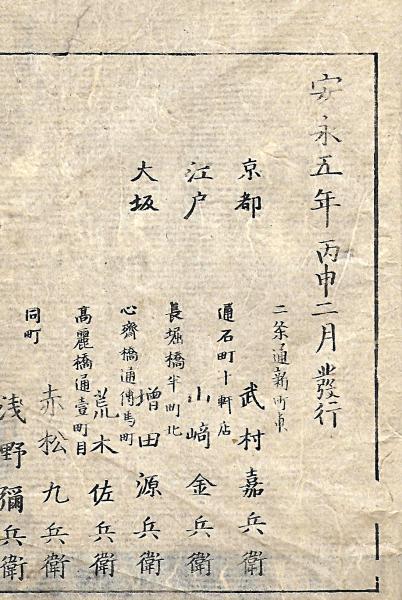 安永五年丙申二月發行
京都
二条通新町東
武村嘉兵衛
江戸
通石町十軒店
山﨑金兵衛
大坂
長堀橋半町北
増田源兵衛
心齋橋通傳馬町
荒木佐兵衛
高麗橋通壹町目
赤松九兵衛
同町
浅野彌兵衛